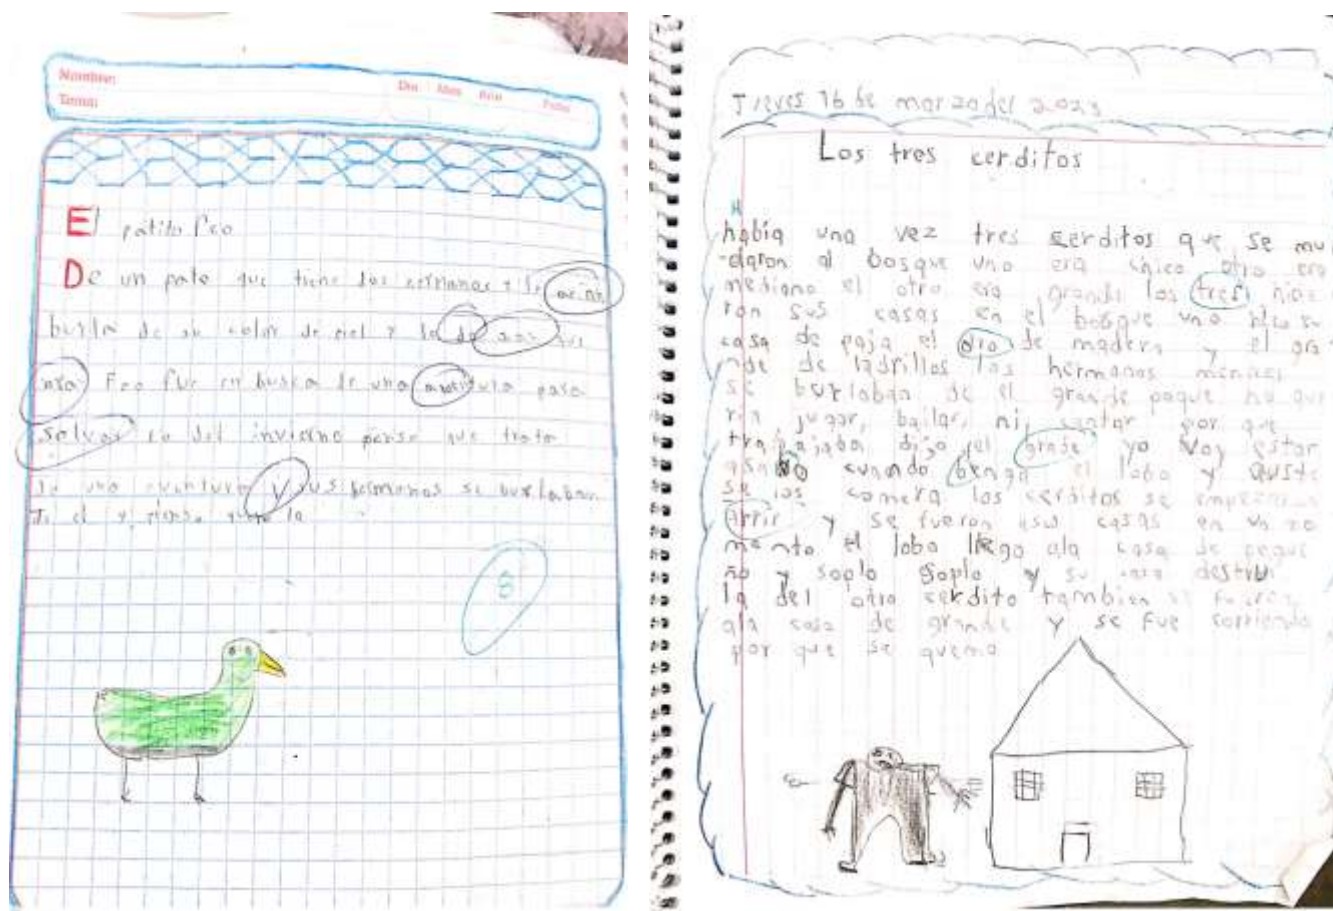 Nombre:
Tema:
Día Mes Año Folio
El patito feo
De un pato que tiene dos hermanos y le
burla de su color de piel y lo que
Feo fue en busca de una aventura para
salvar del invierno pense que trata
de una aventura y sus hermanos se burlaban
de el y pienso
8
Jueves 16 de marzo del 2023
Los tres cerditos
H
había una vez tres cerditos que se mu
-daron al bosque uno era chico otro era
mediano el otro era grande los tres hicie
ron sus casas en el bosque uno hizo su
casa de paja el oro de madera y el gra
nde de ladrillos los hermanos menores
se burlaban de el grande poque no que
ria jugar, bailar, ni, cantar por que
trabajaba dijo el grade yo voy estar
cuando benga el lobo y
se los comera los cerditos se empezaron
arrir y se fueron asus casas en un mo
mento el lobo llego ala casa de peque
ño y soplo soplo y su casa destrui
la del otro cerdito tambien se fueron
ala casa de grande y se fue corriendo
por que se quemo